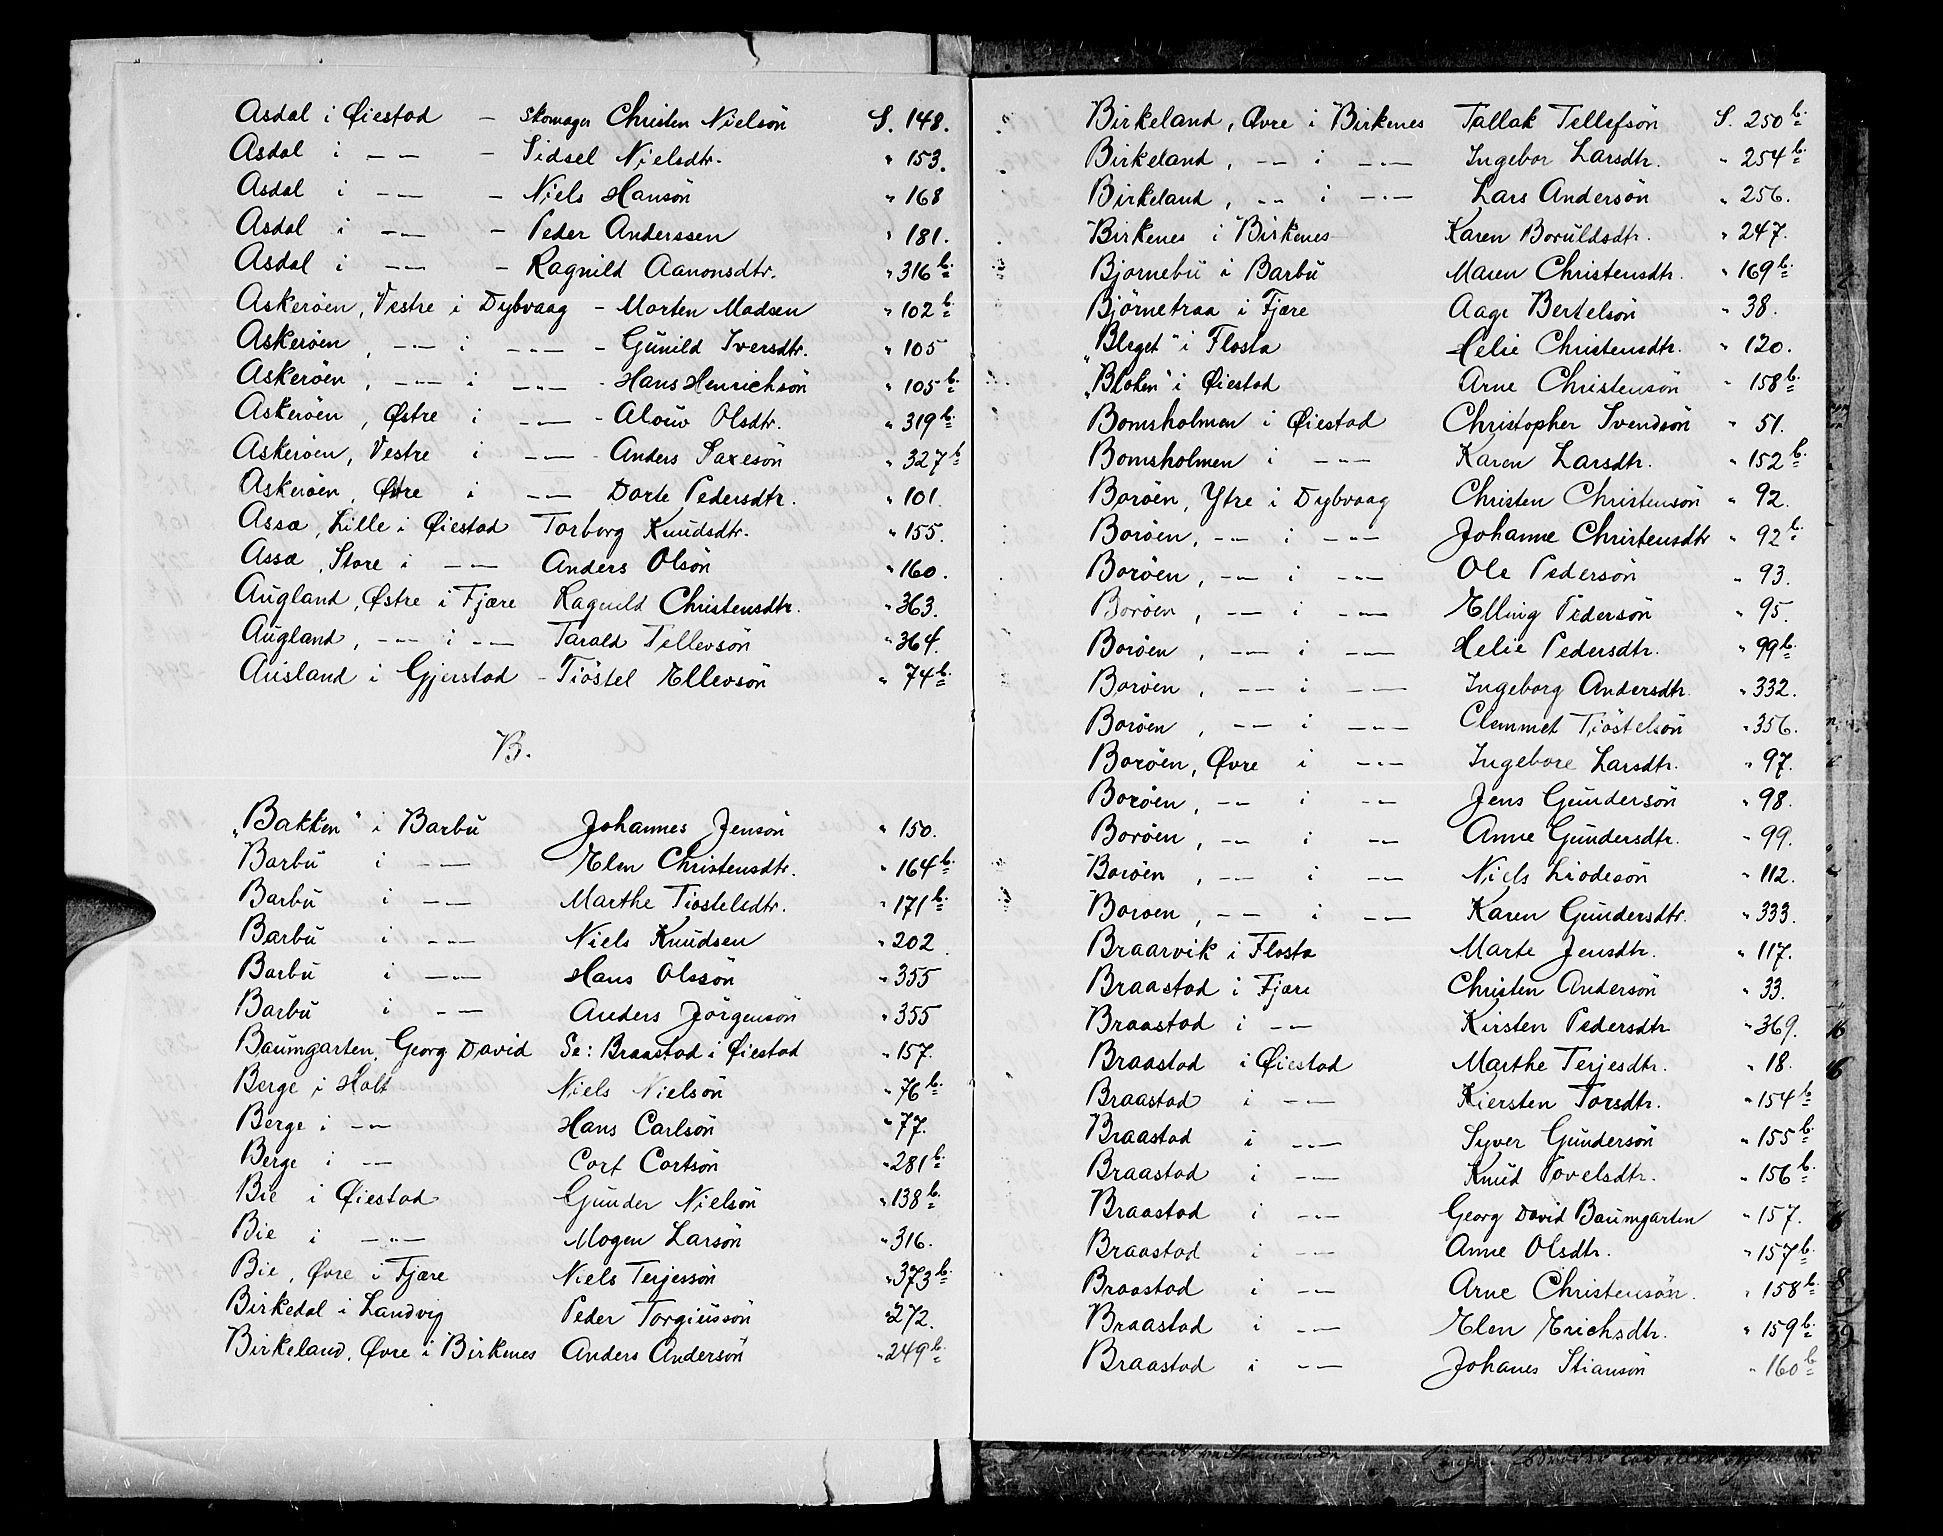 Asdal i Øiestad - Skomager Christen Nielsön S. 148.
Asdal i -"- - Sidsel Nielsdtr. " 153.
Asdal i -"- - Niels Hansön " 168
Asdal i -"- - Peder Anderssen " 181.
Asdal i -"- - Ragnild Aanonsdtr. " 316 b.
Askeröen, Vestre i Dybvaag - Morten Madsen " 102 b.
Askeröen, -"- i -"- - Gunild Iversdtr. " 105
Askeröen, -"- i -"- - Hans Henrichsön " 105 b.
Askeröen, Østre i -"- - Alouv Olsdtr. " 319 b.
Askeröen, Vestre i -"- - Anders Saxesön " 327 b
Askeröen, Østre i -"- Dorte Pedersdtr. " 101.
Assa, Lille i Øiestad Torborg Knudsdtr. " 155.
Assa, Store i -"- Anders Olsön " 160.
Augland, Østre i Fjære Ragnild Christensdtr. " 363.
Augland, -"- i -"- Tarald Tellevsön " 364.
Ausland i Gjerstad - Tiöstel Ellevsön " 74 b.
B.
"Bakken" i Barbu Johannes Jensön " 150.
Barbu i -"- Elen Christensdtr. " 164 b.
Barbu i -"- Marthe Tiostelsdtr. " 171 b.
Barbu i -"- Niels Knudsen " 202.
Barbu i -"- Hans Olssön " 355
Barbu i -"- Anders Jörgensön " 355
Baumgarten, Georg David Se: Braastad i Øiestad " 157.
Berge i Holt Niels Nielsön " 76 b.
Berge i -"- Hans Carlsön " 77.
Berge i -"- Cort Cortsön " 281 b.
Bie i Øiestad Gunder Nielsön " 138 b.
Bie i -"- Mogen Larsön " 316.
Bie, Øvre i Fjære Niels Terjessön " 373 b.
Birkedal i Landvig Peder Torgiussön " 272.
Birkeland, Øvre i Birkenes Anders Andersön " 249 b.
Birkeland, Øvre i Birkenes Tallak Tellefsön S. 250 b.
Birkeland, -"- i -"- Ingebor Larsdtr. " 254 b.
Birkeland, -"- i -"- Lars Andersön " 256.
Birkenes i Birkenes Karen Boruldsdtr. " 247.
Bjornebu i Barbu Maren Christensdtr. " 169 b.
Björnetraa i Fjære Aage Bertelsön " 38.
"Bleget" i Flosta Helie Christensdtr. " 120.
"Bloken" i Øiestad Arne Christensön " 158 b.
Bomsholmen i Øiestad Christopher Svendsön " 51.
Bomsholmen i -"- Karen Larsdtr. " 152 b.
Boröen, Ytre i Dybvaag Christen Christensön " 92.
Boröen, -"- i -"- Johanne Christensdtr " 92 b.
Boröen, -"- i -"- Ole Pedersön " 93.
Boröen, -"- i -"- Elling Pedersön " 95.
Boröen, -"- i -"- Helie Pedersdtr. " 99 b.
Boröen, -"- i -"- Ingeborg Andersdtr. " 332.
Boröen, -"- i -"- Clemmet Tiöstelsön " 356.
Boröen, Øvre i -"- Ingebore Larsdtr. " 97.
Boröen, -"- i -"- Jens Gundersön " 98.
Boröen, -"- i -"- Anne Gundersdtr. " 99.
Boröen, -"- i -"- Niels Liodesön " 112.
Boroen, -"- i -"- Karen Gundersdtr. " 333.
Braarvik i Flosta Marte Jensdtr. " 117.
Braastad i Fjære Christen Andersön " 33.
Braastad i -"- Kirsten Pedersdtr " 369.
Braastad i Øiestad Marthe Terjesdtr. " 18.
Braastad i -"- Kiersten Torsdtr. " 154 b.
Braastad i -"- Syver Gundersön " 155 b.
Braastad i -"- Knud Povelsdtr. " 156 b.
Braastad i -"- Georg David Baumgarten " 157.
Braastad i -"- Anne Olsdtr. " 157 b.
Braastad i -"- Arne Christensön. " 158 b.
Braastad i -"- Elen Erichsdtr. " 159 b.
Braastad i -"- Johanes Stiansön " 160 b.